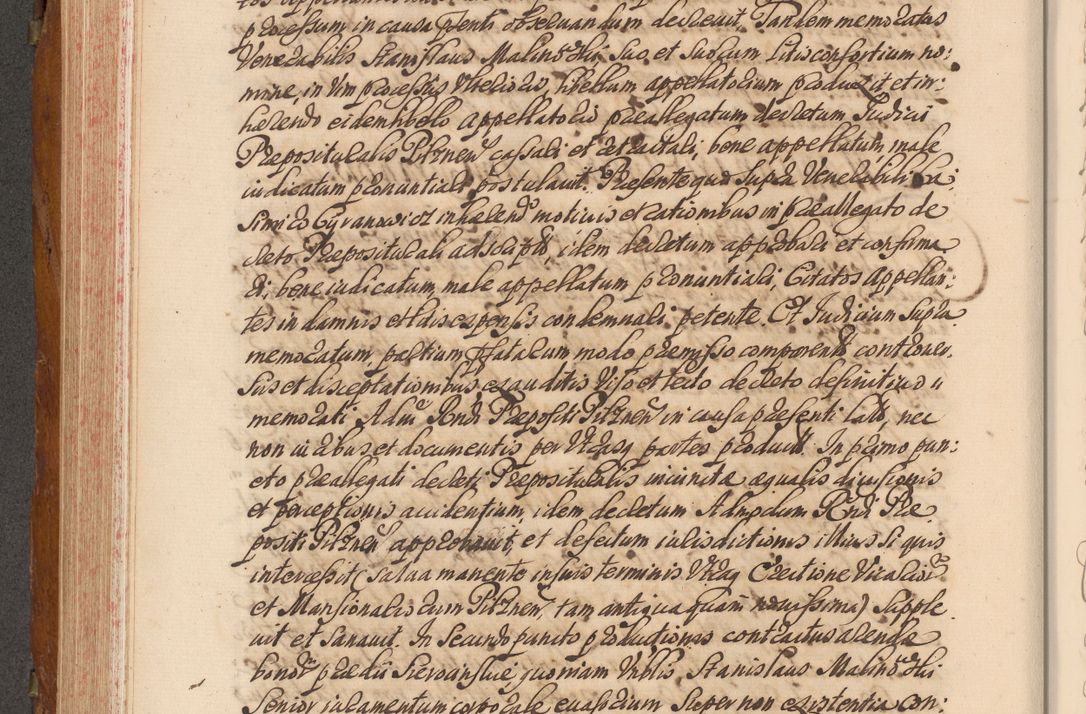 processum in causa pnti observandum decrevit, Tandem memoratus
Venerabilis Stanislaus Malinoski suo et suorum Litis consortium no:
mine, in vim processus Ulterioris, libellum appellatorium produxit et in:
hærendo eidem libello appellatorio præallegatum decretum Judicii
Præposituralis Pilznen cassari et retractari, bene appellatum, male
iudicatum pronuntiari postulavit. Præsente quo supra Venerabili Ca:
simiro Cyranowicz inhærend motivis et rationibus in præallegato de
creto Præpositurali adscriptis, idem decretum approbari et confirma
ri, bene iudicatum male appellatum pronuntiari, Citatos Appellan:
tes in damnis et litis expensis condemnari petente. Et Judicium supra
memoratum, partium pfatarum modo præmisso comparent controver.
sus et disceptationibus exauditis Viso et lecto decreto definitivo
memorati Adm Rndi Præpositi Pilznen in causa præsenti lato, nec
non iuribus et documentis per Utrasq partes product. In primo pun:
cto præallegati decreti Præposituralis inivnctæ æqualis divisionis
et perceptionis accidentium, idem decretum Admodum Rndi Præ
positi Pilznen approbavit, et defectum iurisdictionis illius si quis
intercessit (salva manente in suis terminis Utraq Erectione Vicarior
et Mansionariorum Pilznen, tam antiqua quam novissima) supple
vit et sanavit. In secundo puncto productionis contractus arendæ
bonor prædii Sieroanskie, quoniam Vnblis, Stanislaus Malinoski
Senior iuramentum corporale evasorium super non existentia con: